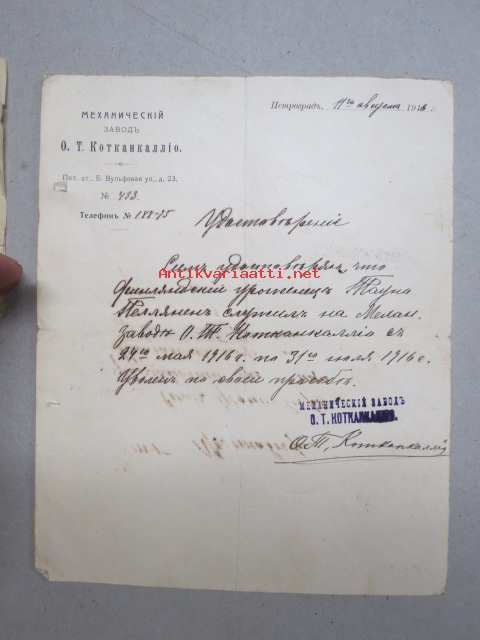 МЕХАНИЧЕСКІЙ
ЗАВОДЪ
О. Т. Котканкалліо.
Пет. ст., Б. Вульфовая ул., д. 23.
№ 483
Телефонъ № 188-75
Петроградъ, 11го августа 1916 г.
Удостовѣреніе
Antikvariaatti.net
Симъ удостовѣряю, что
Финляндскій уроженецъ Тауно
служилъ на Механ.
Заводѣ О. Т. Котканкалліо съ
24го мая 1916 г. по 31го июля 1916 г.
Уволенъ по своей просьбѣ.
МЕХАНИЧЕСКІЙ ЗАВОДЪ
О. Т. КОТКАНКАЛЛІО.
О. Т. Котканкалліо